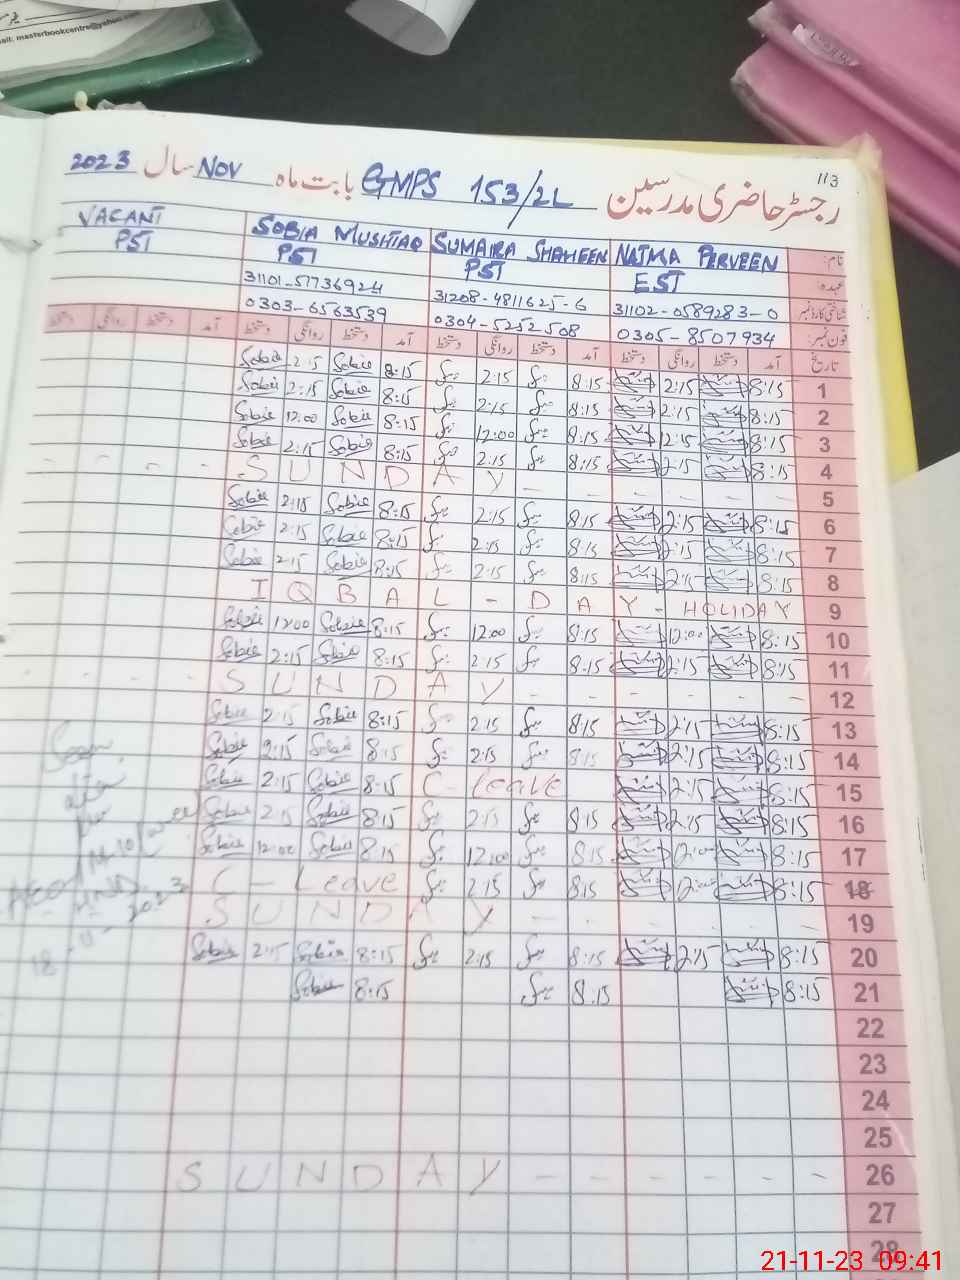 mail: masterbookcentre@yahoo.com
113
رجسٹر حاضری مدرسین GMPS 153/2L بابت ماہ Nov سال 2023
نام: NAJMA PERVEEN SUMAIRA SHAHEEN SOBIA MUSHTAQ VACANT
عہدہ: EST PST PST PST
شناختی کارڈ نمبر 31102-0589283-0 31208-4811625-6 31101-5773692-4
فون نمبر: 0305-8507934 0304-5252508 0303-6563539
تاریخ آمد دستخط روانگی دستخط آمد دستخط روانگی دستخط آمد دستخط روانگی دستخط آمد دستخط روانگی دستخط
Sobia 2:15 Sobia 8:15 2:15 8:15 2:15 8:15 1
Sobia 2:15 Sobia 8:15 2:15 8:15 2:15 8:15 2
Sobia 12:00 Sobia 8:15 12:00 8:15 12:15 8:15 3
Sobia 2:15 Sobia 8:15 2:15 8:15 2:15 8:15 4
- - - - SUNDAY - - - - - - 5
Sobia 2:15 Sobia 8:15 2:15 8:15 2:15 8:15 6
Sobia 2:15 Sobia 8:15 2:15 8:15 2:15 8:15 7
Sobia 2:15 Sobia 8:15 2:15 8:15 2:15 8:15 8
IQBAL - DAY - HOLIDAY 9
Sobia 12:00 Sobia 8:15 12:00 8:15 12:00 8:15 10
Sobia 2:15 Sobia 8:15 2:15 8:15 2:15 8:15 11
- - - - SUNDAY - - - - - - 12
Sobia 2:15 Sobia 8:15 2:15 8:15 2:15 8:15 13
Sobia 2:15 Sobia 8:15 2:15 8:15 2:15 8:15 14
Sobia 2:15 Sobia 8:15 C-leave 2:15 8:15 15
Sobia 2:15 Sobia 8:15 2:15 8:15 2:15 8:15 16
Sobia 12:00 Sobia 8:15 12:00 8:15 8:15 17
C-Leave 2:15 8:15 8:15 18
SUNDAY - - - - - - 19
Sobia 2:15 Sobia 8:15 2:15 8:15 2:15 8:15 20
Sobia 8:15 8:15 8:15 21
22
23
24
25
SUNDAY - - - - - - 26
27
28
Seen
AEO
18-11-2023
21-11-23 09:41